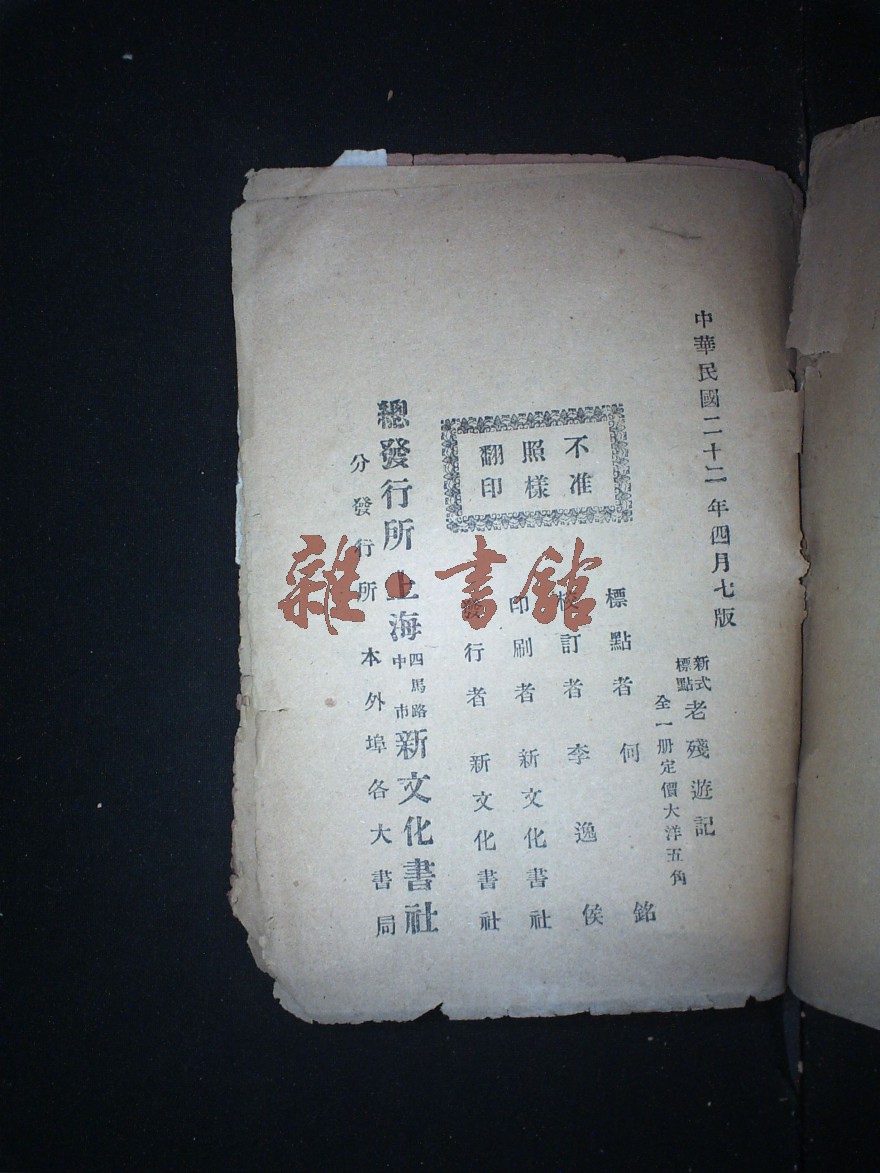 中華民國二十二年四月七版
新式標點老殘遊記
全一册定價大洋五角
不准
照樣
翻印
標點者 何銘
校訂者 李逸侯
印刷者 新文化書社
發行者 新文化書社
總發行所 上海四馬路中市新文化書社
分發行所 本外埠各大書局
雜·書館